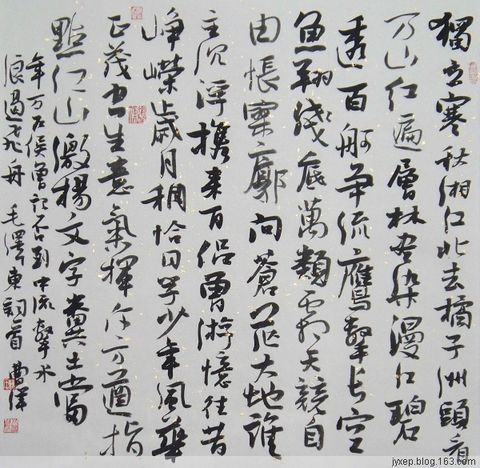 獨立寒秋湘江北去橘子洲頭看
万山红遍層林尽染漫江碧
透百舸争流鷹擊长空
魚翔淺底萬類霜天競自
由悵寥廓问蒼茫大地誰
主沉浮携来百侣曾游憶往昔
崢嶸歲月稠恰同学少年風華
正茂书生意氣揮斥方遒指
點江山激揚文字糞土當
年万户侯曾记否到中流擊水
浪遏飞舟 毛澤東詞一首
jyxep.blog.163.com